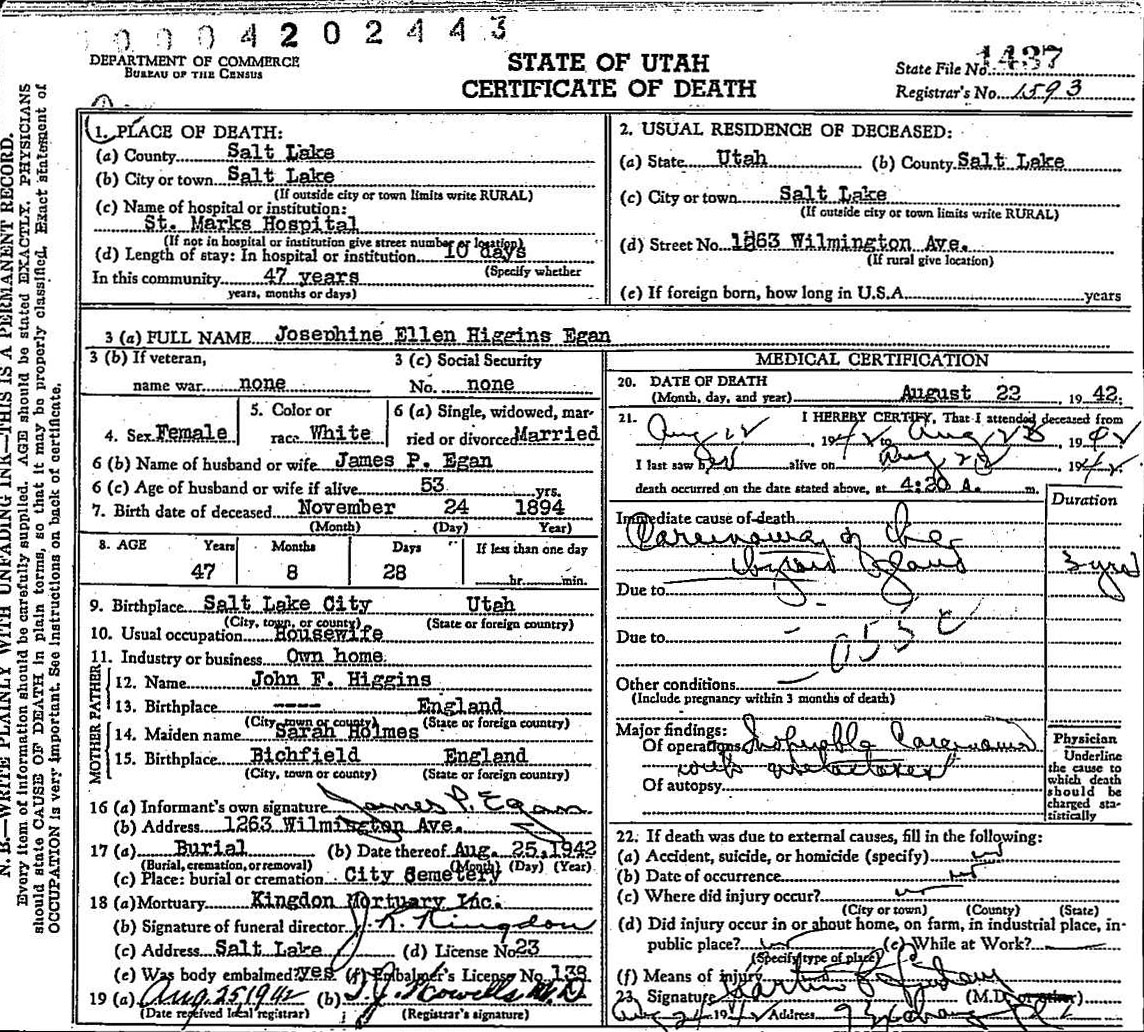 00042 02443
DEPARTMENT OF COMMERCE
BUREAU OF THE CENSUS
STATE OF UTAH
CERTIFICATE OF DEATH
State File No. 1437
Registrar's No. 1593
N. B.—WRITE PLAINLY WITH UNFADING INK—THIS IS A PERMANENT RECORD.
Every item of information should be carefully supplied. AGE should be stated EXACTLY. PHYSICIANS
should state CAUSE OF DEATH in plain terms, so that it may be properly classified. Exact statement of
OCCUPATION is very important. See instructions on back of certificate.
1. PLACE OF DEATH:
(a) County Salt Lake
(b) City or town Salt Lake
(If outside city or town limits write RURAL)
(c) Name of hospital or institution:
St. Marks Hospital
(If not in hospital or institution give street number or location)
(d) Length of stay: In hospital or institution 10 days
(Specify whether
In this community 47 years
years, months or days)
2. USUAL RESIDENCE OF DECEASED:
(a) State Utah (b) County Salt Lake
(c) City or town Salt Lake
(If outside city or town limits write RURAL)
(d) Street No. 1263 Wilmington Ave.
(If rural give location)
(e) If foreign born, how long in U.S.A. years
3 (a) FULL NAME Josephine Ellen Higgins Egan
3 (b) If veteran, 3 (c) Social Security
name war none No. none
4. Sex Female 5. Color or race White 6 (a) Single, widowed, married or divorced Married
6 (b) Name of husband or wife James P. Egan
6 (c) Age of husband or wife if alive 53 yrs.
7. Birth date of deceased November 24 1894
(Month) (Day) Year)
8. AGE Years Months Days If less than one day
47 8 28 hr. min.
9. Birthplace Salt Lake City Utah
(City, town, or county) (State or foreign country)
10. Usual occupation Housewife
11. Industry or business Own home
FATHER
12. Name John F. Higgins
13. Birthplace ---- England
(City, town or county) (State or foreign country)
MOTHER
14. Maiden name Sarah Holmes
15. Birthplace Bichfield England
(City, town or county) (State or foreign country)
16 (a) Informant's own signature James P. Egan
(b) Address 1263 Wilmington Ave.
17 (a) Burial (b) Date thereof Aug. 25, 1942
(Burial, cremation, or removal) (Month) (Day) (Year)
(c) Place: burial or cremation City Cemetery
18 (a) Mortuary Kingdon Mortuary Inc.
(b) Signature of funeral director J. R. Kingdon
(c) Address Salt Lake (d) License No. 23
(e) Was body embalmed? yes (f) Embalmer's License No. 138
19 (a) Aug. 25, 1942 (b) T. J. Howells M.D.
(Date received local registrar) (Registrar's signature)
MEDICAL CERTIFICATION
20. DATE OF DEATH
(Month, day, and year) August 22, 1942
21. I HEREBY CERTIFY, That I attended deceased from
Aug 12, 1942 to Aug 1942
I last saw h alive on Aug 1942
death occurred on the date stated above, at 4:20 A. m.
Duration
Immediate cause of death
Carcinoma of the
thyroid gland 3 yrs
Due to
Due to
055
Other conditions
(Include pregnancy within 3 months of death)
Major findings:
Of operations Inoperable Carcinoma
with metastases
Of autopsy
Physician
Underline
the cause to
which death
should be
charged sta-
tistically
22. If death was due to external causes, fill in the following:
(a) Accident, suicide, or homicide (specify)
(b) Date of occurrence
(c) Where did injury occur?
(City or town) (County) (State)
(d) Did injury occur in or about home, on farm, in industrial place, in-
public place? (e) While at Work?
(Specify type of place)
(f) Means of injury
23. Signature Martin (M.D. or other)
Aug 24 1942 Address